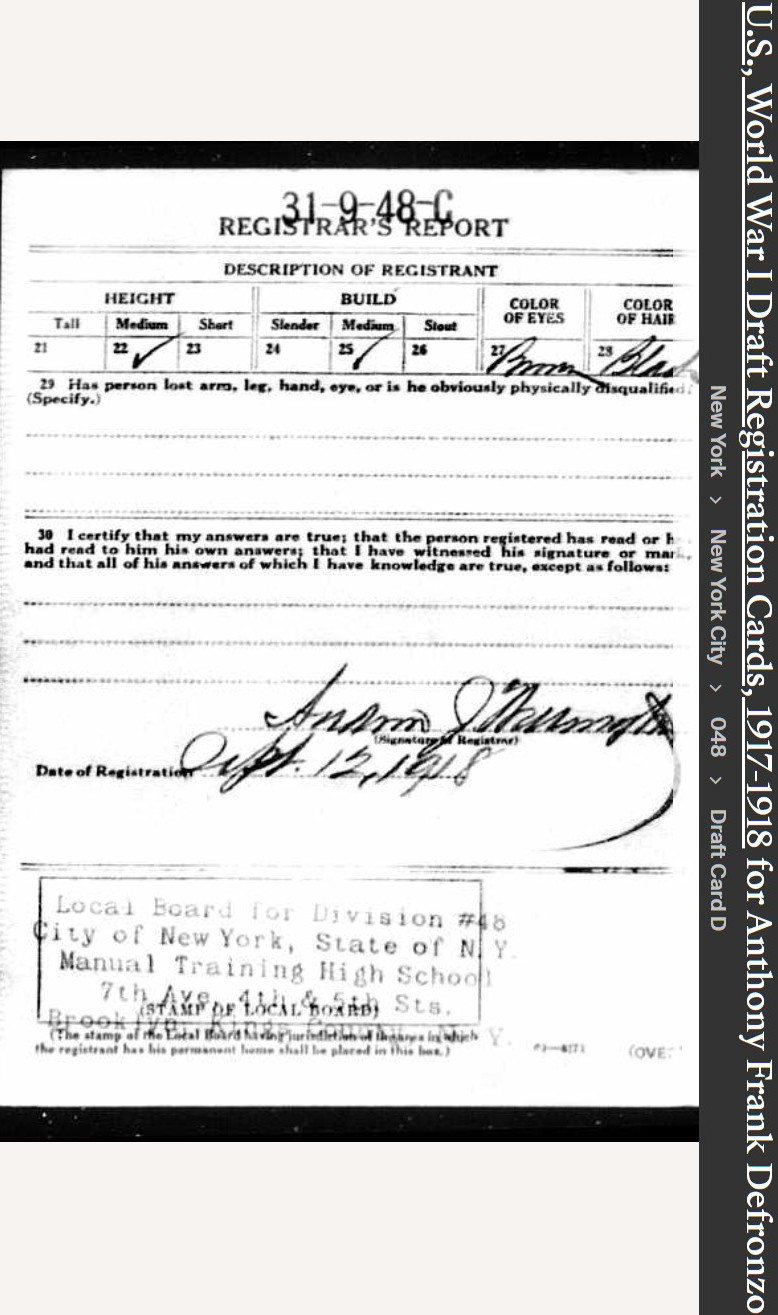 31-9-48-C
REGISTRAR'S REPORT
DESCRIPTION OF REGISTRANT
HEIGHT BUILD COLOR OF EYES COLOR OF HAIR
Tall Medium Short Slender Medium Stout
21 22 ✓ 23 24 25 ✓ 26 27 Brown 28 Black
29 Has person lost arm, leg, hand, eye, or is he obviously physically disqualified
(Specify.)
30 I certify that my answers are true; that the person registered has read or h
had read to him his own answers; that I have witnessed his signature or mar
and that all of his answers of which I have knowledge are true, except as follows:
(Signature of Registrar)
Date of Registration Sept. 12, 1918
Local Board for Division #48
City of New York, State of N. Y.
Manual Training High School
7th Ave. 4th & 5th Sts.
(STAMP OF LOCAL BOARD)
Brooklyn, Kings County, N. Y.
(The stamp of the Local Board having jurisdiction of the area in which
the registrant has his permanent home shall be placed in this box.)
(OVE
U.S., World War I Draft Registration Cards, 1917-1918 for Anthony Frank Defronzo
New York > New York City > 048 > Draft Card D